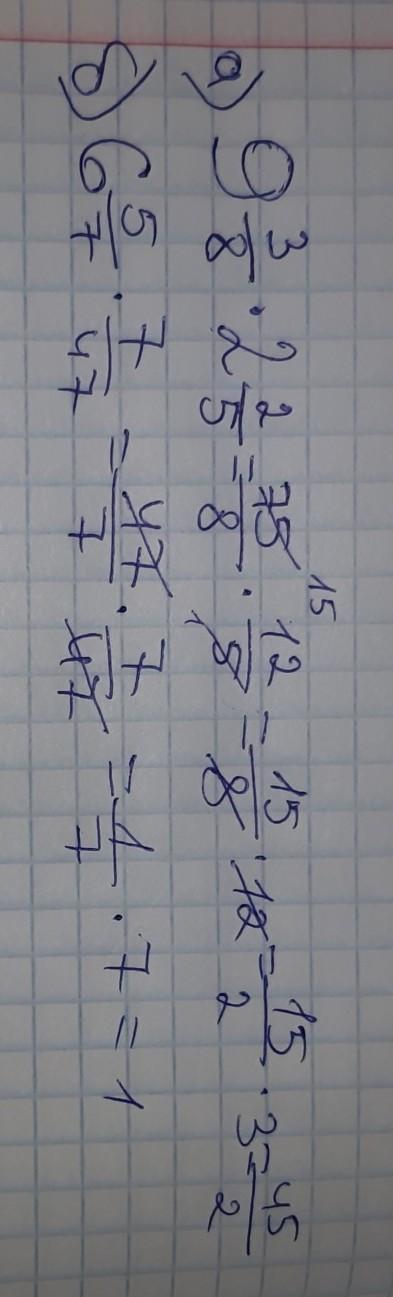 а) 9 3/8 · 2 2/5 = 75/8 · 12/5 = 15/8 · 12 = 15/2 · 3 = 45/2
15 1 2
б) 6 5/7 · 7/47 = 47/7 · 7/47 = 1/7 · 7 = 1